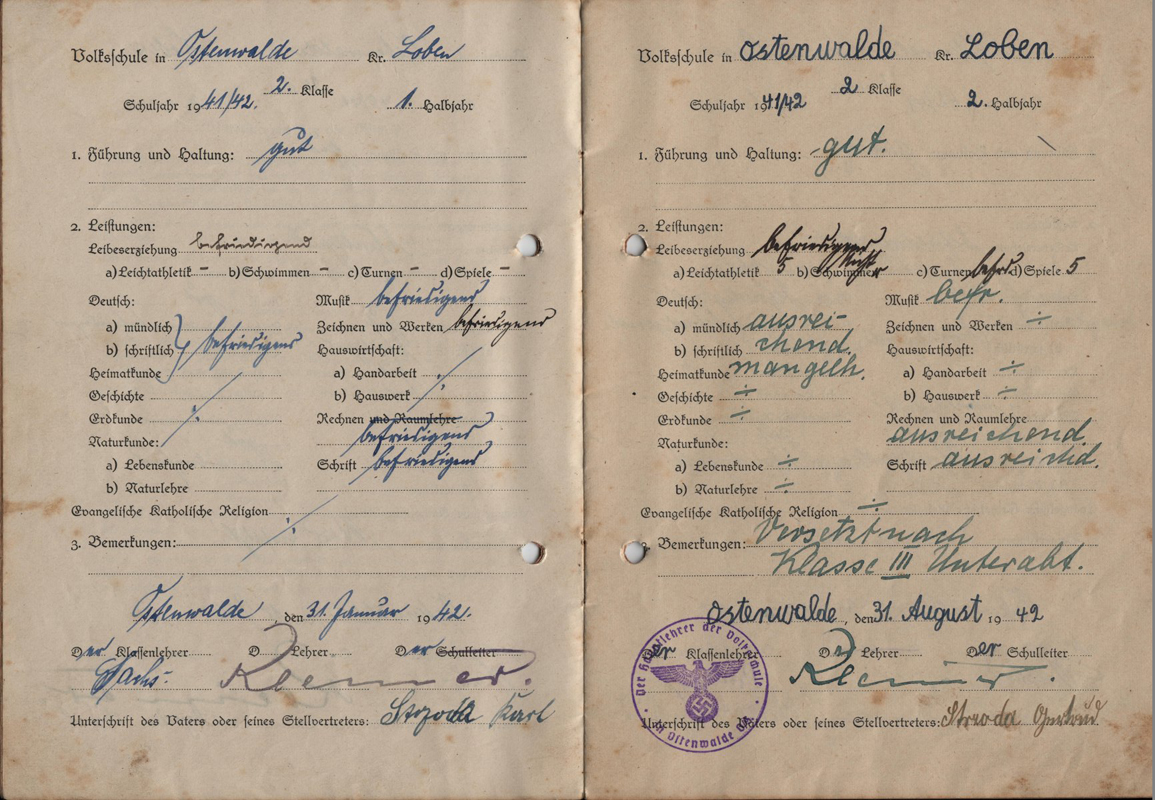 Volksschule in Ostenwalde Kr. Loben
Schuljahr 1941/42. 2. Klasse 1. Halbjahr
1. Führung und Haltung: gut
2. Leistungen:
Leibeserziehung befriedigend
a) Leichtathletik – b) Schwimmen – c) Turnen – d) Spiele –
Deutsch: Musik befriedigend
a) mündlich Zeichnen und Werken befriedigend
b) schriftlich befriedigend Hauswirtschaft:
Heimatkunde a) Handarbeit
Geschichte b) Hauswerk
Erdkunde Rechnen und Raumlehre
Naturkunde: befriedigend
a) Lebenskunde Schrift befriedigend
b) Naturlehre
Evangelische Katholische Religion
3. Bemerkungen:
Ostenwalde, den 31. Januar 1942.
Der Klassenlehrer D Lehrer Der Schulleiter
Unterschrift des Vaters oder seines Stellvertreters: Karl
Volksschule in Ostenwalde Kr. Loben
Schuljahr 1941/42 2 Klasse 2. Halbjahr
1. Führung und Haltung: gut.
2. Leistungen:
Leibeserziehung befriedigend
a) Leichtathletik 5 b) Schwimmen c) Turnen befrd d) Spiele 5
Deutsch: Musik befr.
a) mündlich ausrei- Zeichnen und Werken ÷
b) schriftlich chend. Hauswirtschaft:
Heimatkunde mangelh. a) Handarbeit ÷
Geschichte ÷ b) Hauswerk ÷
Erdkunde ÷ Rechnen und Raumlehre
Naturkunde: ausreichend.
a) Lebenskunde ÷ Schrift ausreichd.
b) Naturlehre ÷
Evangelische Katholische Religion ÷
3. Bemerkungen: Versetzt nach
Klasse III Unterabt.
Ostenwalde, den 31. August 1942
Der Klassenlehrer Der Lehrer Der Schulleiter
Unterschrift des Vaters oder seines Stellvertreters:
Der Hauptlehrer der Volksschule
in Ostenwalde OS